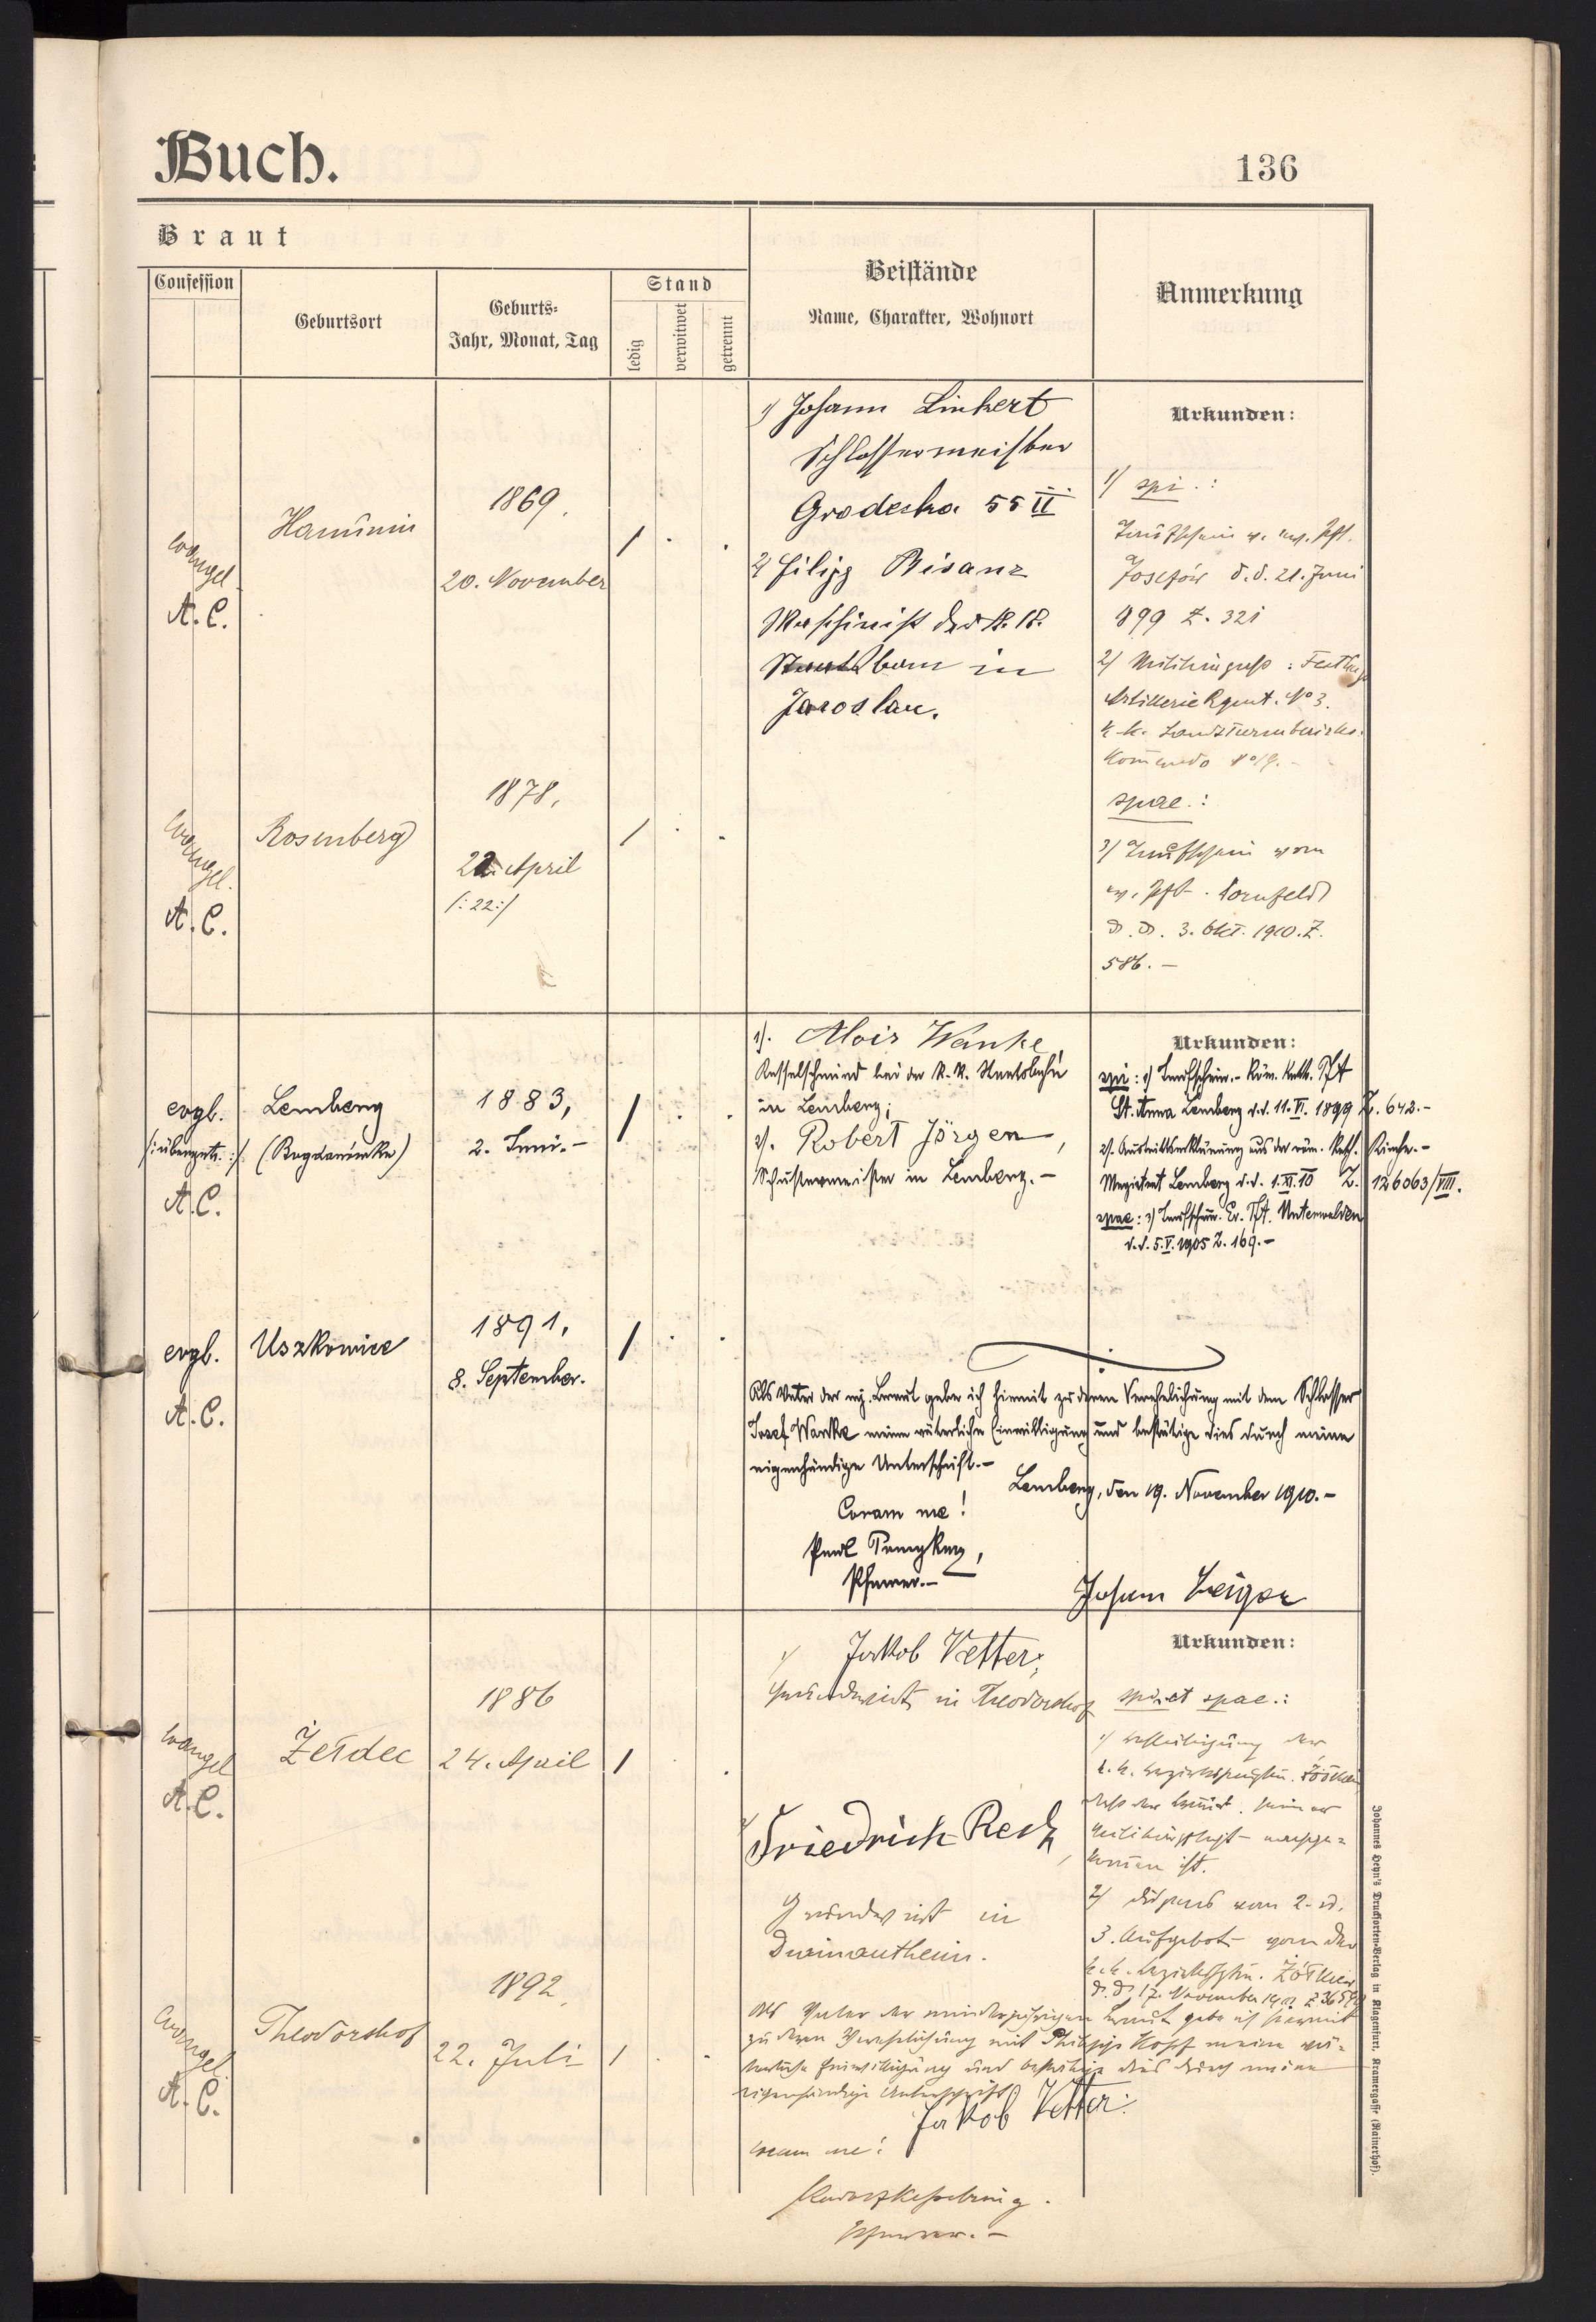 Buch.
136
Braut
Confession
Geburtsort
Geburts-
Jahr, Monat, Tag
Stand
ledig
verwitwet
getrennt
Beistände
Name, Charakter, Wohnort
Anmerkung
evangel.
A. C.
Hanunin
1869.
20. November
/
1) Johann Linkert
Schlossermeister
Grodecka 55 II
2) Filipp Bisanz
Maschinist der k. k.
Staatsban in
Jaroslau.
Urkunden:
1) spi.:
Taufschein v. ev. Pft.
Josefów d.d. 21. Juni
899 Z. 321
2) Militärpass:
Artillerie Rgmt. No 3.
k. k. Landsturmbezirks.
Komando No 19.-
spae.:
3) Taufschein vom
ev. Pft. Hornfeld
d. d. 3. Okt. 1910. Z.
586.-
evangel.
A. C.
Rosenberg
1878,
22. April
/:22:/
/
evgl.
/:übergetr.:/
A. C.
Lemberg
(Bogdanówka)
1883,
2. Juni.-
/
1). Alois Wanke,
Kesselschmied bei der k. k. Staatsbahn
in Lemberg;
2). Robert Jörgen,
Schustermeister in Lemberg.-
Urkunden:
spi: 1) Taufschein.- Röm. kath. PfA
St. Anna Lemberg d.d. 11. VI. 1899 Z. 642.-
2). Austrittserklärung aus der röm. kath. Kirche.-
Magistrat Lemberg d.d. 1. XI. 10 Z. 126063/VIII.
spae: 3) Taufschein. Ev. PfA. Unterwalden
d.d. 5. V. 1905 Z. 169.-
evgl.
A. C.
Uszkowice
1891,
8. September.
/
Als Vater der mj. Braut gebe ich hiemit zu deren Verehelichung mit dem Schlosser
Josef Wanke meine väterliche Einwilligung und bestätige dies durch meine
eigenhändige Unterschrift.-
Lemberg, den 19. November 1910.-
Coram me!
Paul
Pfarrer.-
Johann Geiger
evangel
A. C.
Żełdec
1886
24. April
/
1) Jakob Vetter,
Grundwirt in Theodorshof
2) Friedrich Rech,
Grundwirt in
Dwimantheim.
Urkunden:
spi. et spae.:
1) Bestätigung der
k. k.
dass der Bräut. seiner
Militärpflicht nachge-
kommen ist.
2) Dispens vom 2. u.
3. Aufgebot von der
k. k. Żółkiew
d. d. 17. November
evangel.
A. C.
Theodorshof
1892.
22. Juli
/
Als Vater der minderjährigen Braut gebe ich hiermit
zu deren Verehelichung mit Philipp Kopf meine vä-
terliche Einwilligung und bestätige dies durch meine
eigenhändige Unterschrift
Jakob Vetter.
coram me!
Pfarrer.-
Johannes Heyn's Drucksorten-Verlag in Klagenfurt, Kramergasse (Rainerhof).